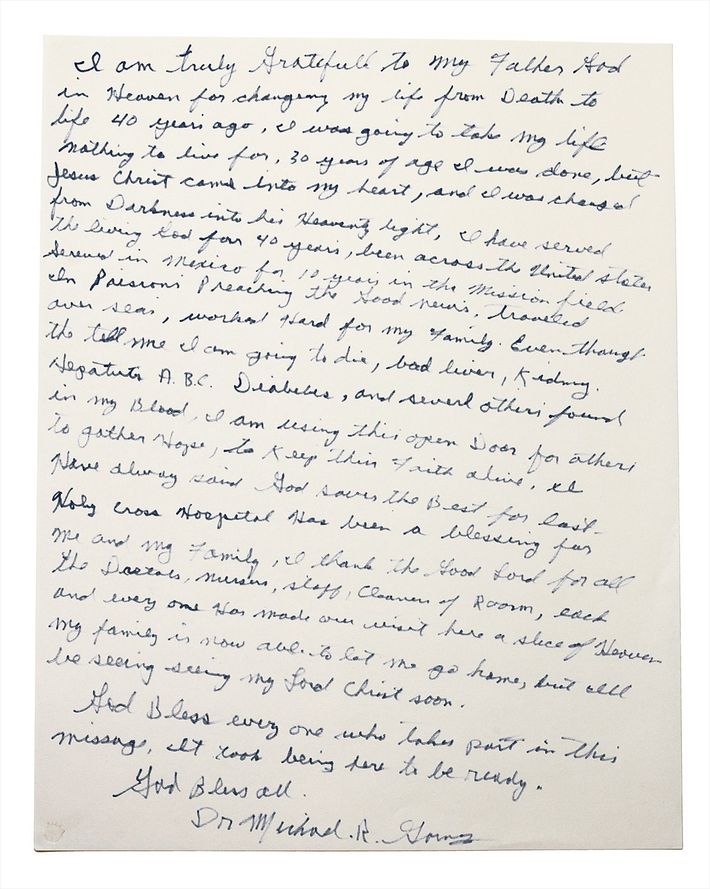 I am truly Gratefull to my Father God
in Heaven for changing my life from Death to
life 40 years ago, I was going to take my life
nothing to live for, 30 years of age I was done, but
Jesus Christ came into my heart, and I was changed
from Darkness into his Heavenly light, I have served
the living God for 40 years, been across the United States
Served in Mexico for 10 years in the Mission field
In Prisions Preaching the Good news, traveled
over seas, worked Hard for my Family. Even though
the tell me I am going to die, bad liver, Kidney.
Hepatuts A.B.C. Diabetes, and severl others found
in my Blood, I am using this open Door for others
to gather Hope, to Keep thin Faith alive, I
Have always said God saves the Best for last-
Holy Cross Hospital Has been a blessing for
me and my Family, I thank the Good Lord for all
the Doctors, nurses, staff, Cleaners of Room, each
and every one Has made our visit here a slice of Heaven
my family is now able to let me go home, but I'll
be seeing seeing my Lord Christ soon.
God Bless every one who takes part in this
missage, It took being here to be ready.
God Bless all.
Dr Michael. R.